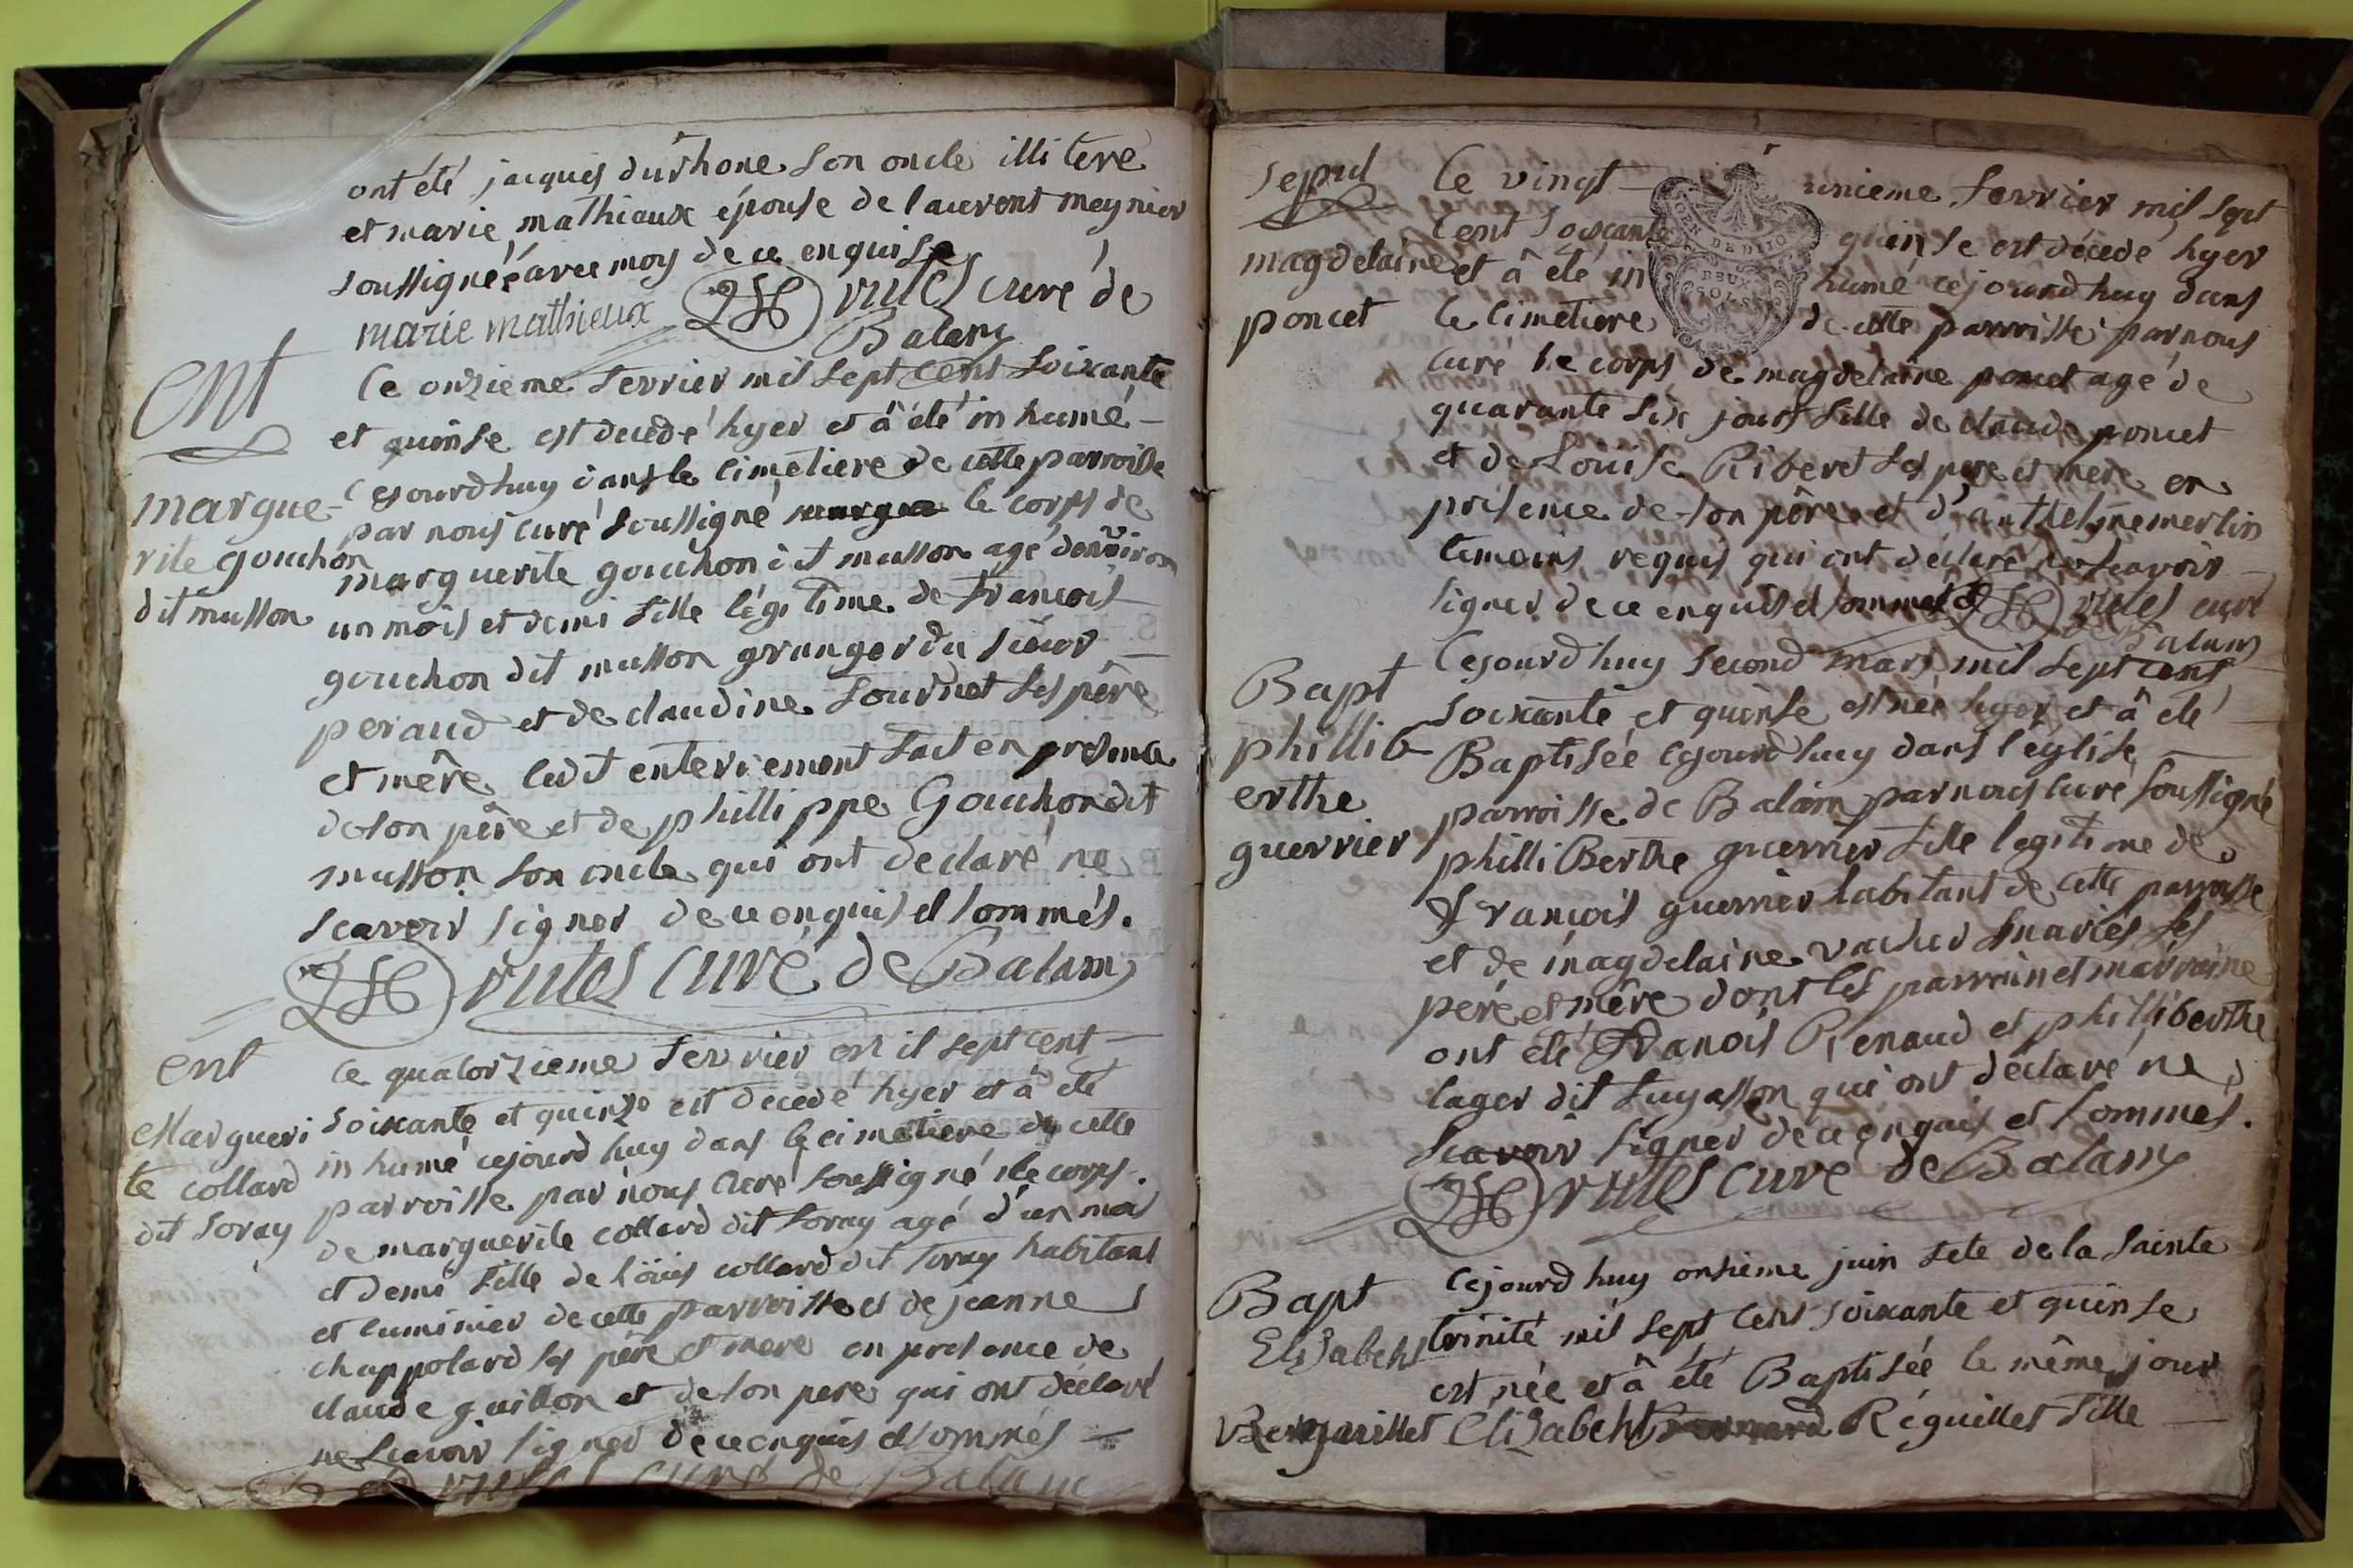 ont été jacques durhone son oncle illitere
et marie mathiaux épouse de laurent meynier
soussignée avec moy de ce enquise
marie mathieux curé de
Balam
Ent
Le onzieme fevrier mil sept cent soixante
et quinse est decedé hyer et â été inhumé
margue-
rite gouchon
dit musson
cejourdhuy dans le cimetiere de cette parroisse
par nous curé soussigné le corps de
marguerite gouchon dit musson agé denviron
un mois et demi fille légitime de francois
gouchon dit musson granger du sieur
peraud et de claudine fournet ses père
et mère ledit enterrement fait en presence
de son père et de phillippe Gouchon dit
musson son oncle qui ont declaré ne
scavoir signer de ce enquis et sommés.
curé de Balam
ent
Margueri
te collard
dit soray
Le quatorzieme fevrier mil sept cent
soixante et quinze est decedé hyer et â été
inhumé cejourdhuy dans le cimetiere de cette
parroisse par nous curé soussigné le corps
de marguerite collard dit soray agé d'un moi
et demi fille de loüis collard dit soray habitant
et luminier de cette parroisse et de jeanne
chappolard ses père et mere en presence de
claude guillon et de son pere qui ont déclaré
ne scavoir signer de ce enquis et sommés
curé de Balam
Sepul
magdelaine
poncet
Le vingt unieme fevrier mil sept
cent soixante quinse est décedé hyer
et â été inhumé cejourdhuy dans
le cimetiere de cette parroisse par nous
DEUX
SOLS
curé le corps de magdelaine poncet agé de
quarante six jours fille de claude poncet
et de Louise Riberet ses pere et mere en
présence de son père et d'anthelme merlin
temoins requis qui ont déclaré ne scavoir
signer de ce enquis et sommés curé
de Balam
Bapt
phillib
erthe
guerrier
Cejourdhuy second mars mil sept cent
soixante et quinse est née hyer et â été
Baptisée cejourdhuy dans l'église
parroisse de Balam par nous curé soussigné
philliBerthe guerrier fille legitime de
francois guerrier habitant de cette parroisse
et de magdelaine vacher mariés ses
père et mère dont les parrain et marraine
ont été francois Renaud et philliberthe
lager dit fuyasson qui ont déclaré ne
scavoir signer de ce enquis et sommés.
curé de Balam
Bapt
Elizabeht
Reguillet
Cejourdhuy onsieme juin fete de la sainte
trinité mil sept cent soixante et quinse
est née et â été Baptisée le même jour
Elizabeht Réguillet fille